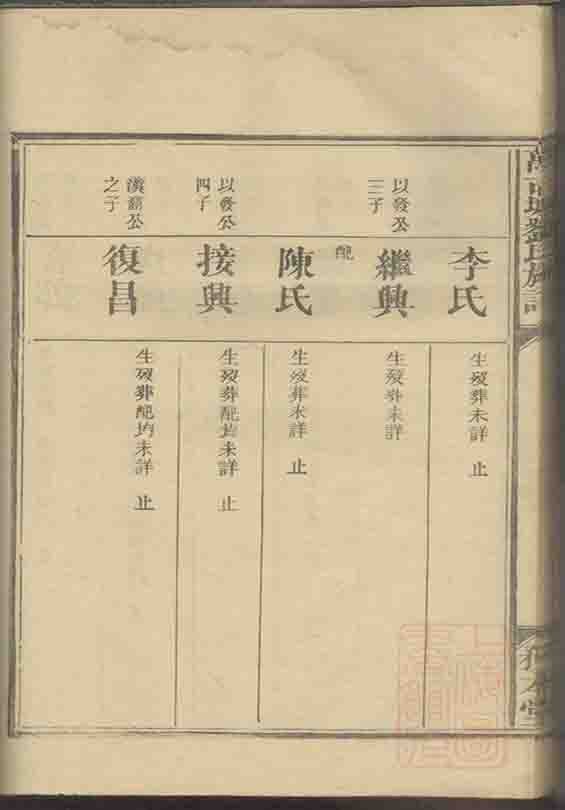 劉氏族
李氏
生歿葬未詳 止
以發公
三子
繼興
生歿葬未詳
配
陳氏
生歿葬未詳 止
以發公
四子
接興
生歿葬配均未詳 止
公
之子
復昌
生歿葬配均未詳 止